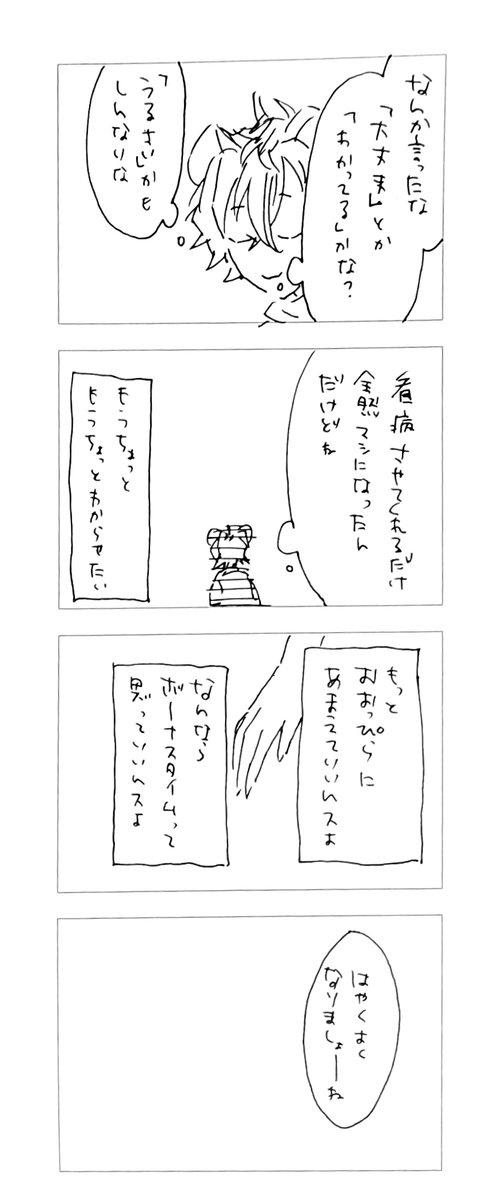 なんか言ったな
「大丈夫」とか
「わかってる」かな?
「うるさい」かも
しんないな
看病させてくれるだけ
全然マシになったん
だけどね
もうちょっと
もうちょっとわからせたい
もっと
おおっぴらに
あまえていいんスよ
なんなら
ボーナスタイムって
思っていいんスよ
はやくよく
なりましょーね